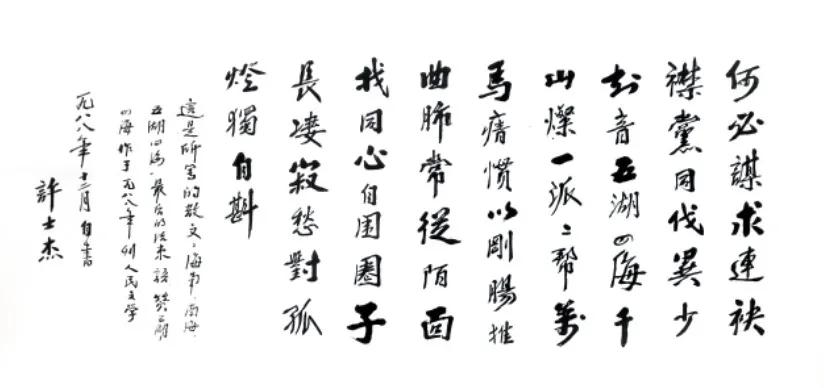 何必謀求連袂
襟黨同伐異少
知音五湖四海千
山燦一派〻幫萬
馬瘖慣以剛腸推
曲肺常從陌面
找同心自围圈子
長凄寂愁對孤
燈獨自斟
這是所寫的散文海南南海
五湖四海最后的結束語
四海作于一九八八年刊人民文学
一九八八年十二月自書
許士杰